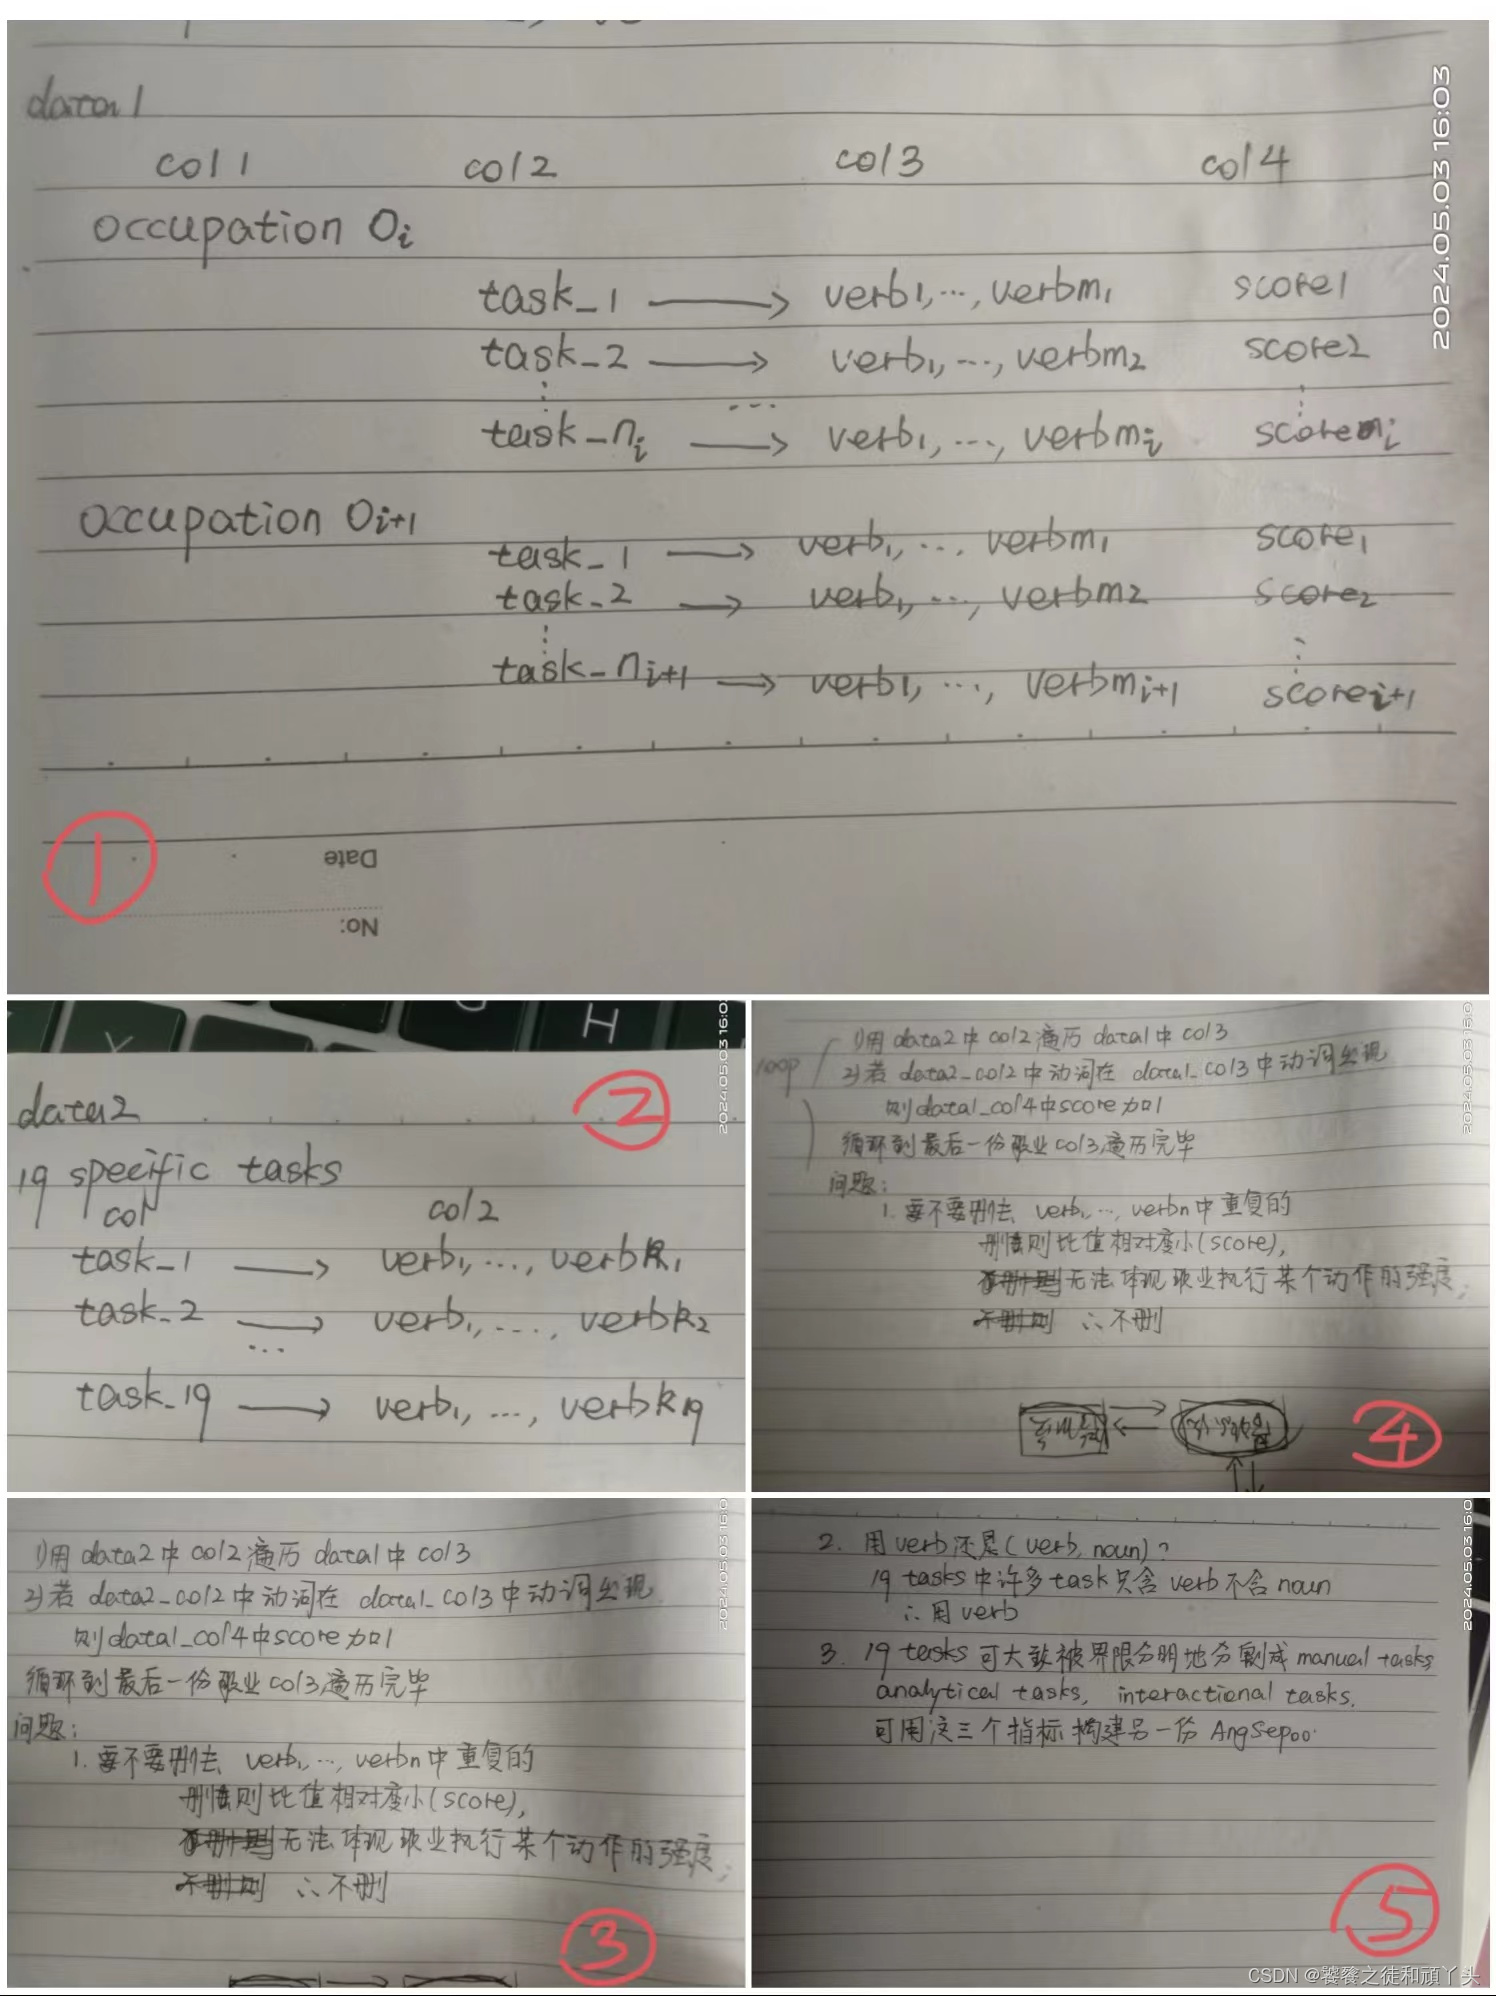 data1
col1 col2 col3 col4
occupation Oi
task_1 → verb1,…,verbm1 score1
task_2 → verb1,…,verbm2 score2
⋮ … ⋮
task_ni → verb1,…,verbmi scoreni
occupation Oi+1
task_1 → verb1,…,verbm1 score1
task_2 → verb1,…,verbm2 score2
⋮ ⋮
task_ni+1 → verb1,…,verbmi+1 scorei+1
①
Date
No:
2024.05.03 16:03
data2
②
19 specific tasks
col1 col2
task_1 → verb1,…,verbk1
task_2 → verb1,…,verbk2
…
task_19 → verb1,…,verbk19
2024.05.03 16:0
loop
1)用data2中col2遍历data1中col3
2)若data2_col2中动词在data1_col3中动词出现
则data1_col4中score加1
循环到最后一份职业col3遍历完毕
问题:
1.要不要删去verb1,…,verbn中重复的
删去则比值相对变小(score),
无法体现职业执行某个动作的强度;
∴不删
④
2024.05.03 16:0
1)用data2中col2遍历data1中col3
2)若data2_col2中动词在data1_col3中动词出现
则data1_col4中score加1
循环到最后一份职业col3遍历完毕
问题:
1.要不要删去verb1,…,verbn中重复的
删去则比值相对变小(score),
无法体现职业执行某个动作的强度;
∴不删
③
2024.05.03 16:0
2.用verb还是(verb, noun)?
19 tasks中许多task只含verb不含noun
∴用verb
3.19 tasks可大致被界限分明地分割成manual tasks
analytical tasks, interactional tasks.
可用这三个指标构建另一份AngSepoo.
⑤
2024.05.03 16:0
CSDN @饕餮之徒和頑丫头